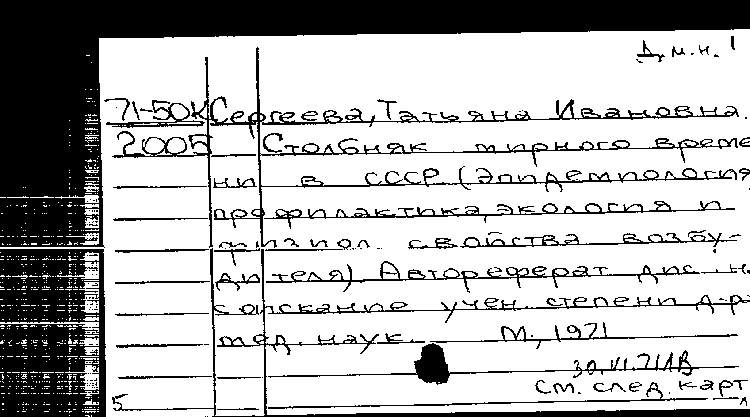 Д.м.н. 1
71-50К Сергеева, Татьяна Ивановна.
2005 Столбняк мирного време
ни в СССР (Эпидемиология,
профилактика, экология и
физиол. свойства возбу-
дителя) Автореферат дис. н
соискание учен. степени д-р
мед. наук. М., 1971
30.VI.71
См. след. карт
5